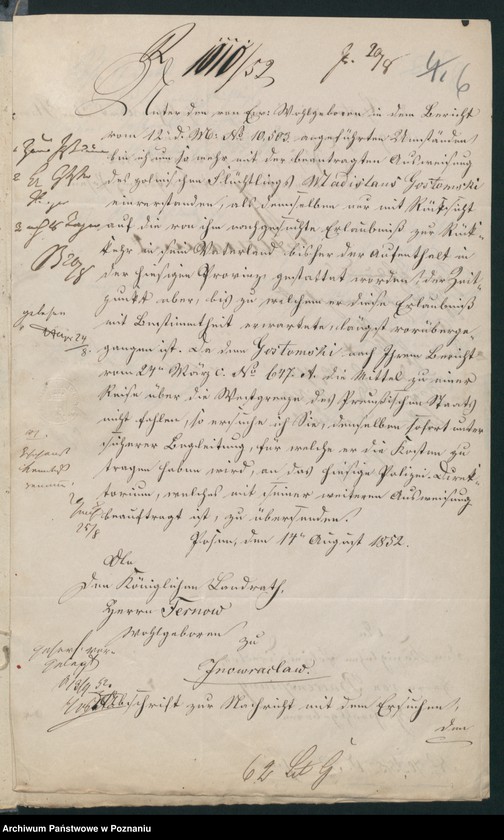 1010/52
J. 20/8
4, 6
Unter den von Euer Wohlgeboren in dem Bericht
vom 12. d. M. No 10,503 angeführten Umständen
bin ich um so mehr mit der beantragten Ausweisung
des polnischen Flüchtlings Wladislaus Gostomski
einverstanden, als demselben nur mit Rücksicht
auf die von ihm nachgesuchte Erlaubniß zur Rück-
kehr in sein Vaterland bisher der Aufenthalt in
der hiesigen Provinz gestattet worden, der Zeit-
punkt aber, bis zu welchem er diese Erlaubniß
mit Bestimmtheit erwartete, längst vorüberge-
gangen ist. Da dem Gostomski nach Ihrem Bericht
vom 24n März c. No 647. die Mittel zu einer
Reise über die Westgrenze des Preußischen Staats
nicht fehlen, so ersuche ich Sie, denselben sofort unter
sicherer Begleitung, für welche er die Kosten zu
tragen haben wird, an das hiesige Polizei-Direk-
torium, welches mit seiner weiteren Ausweisung
beauftragt ist, zu übersenden.
Posen, den 14n August 1852.
An
den Königlichen Landrath,
Herrn Fernow
Wohlgeboren
zu
Inowraclaw.
Abschrift zur Nachricht mit dem Ersuchen,
den
gelesen
24/8.
25/8
62
Archiwum Państwowe w Poznaniu